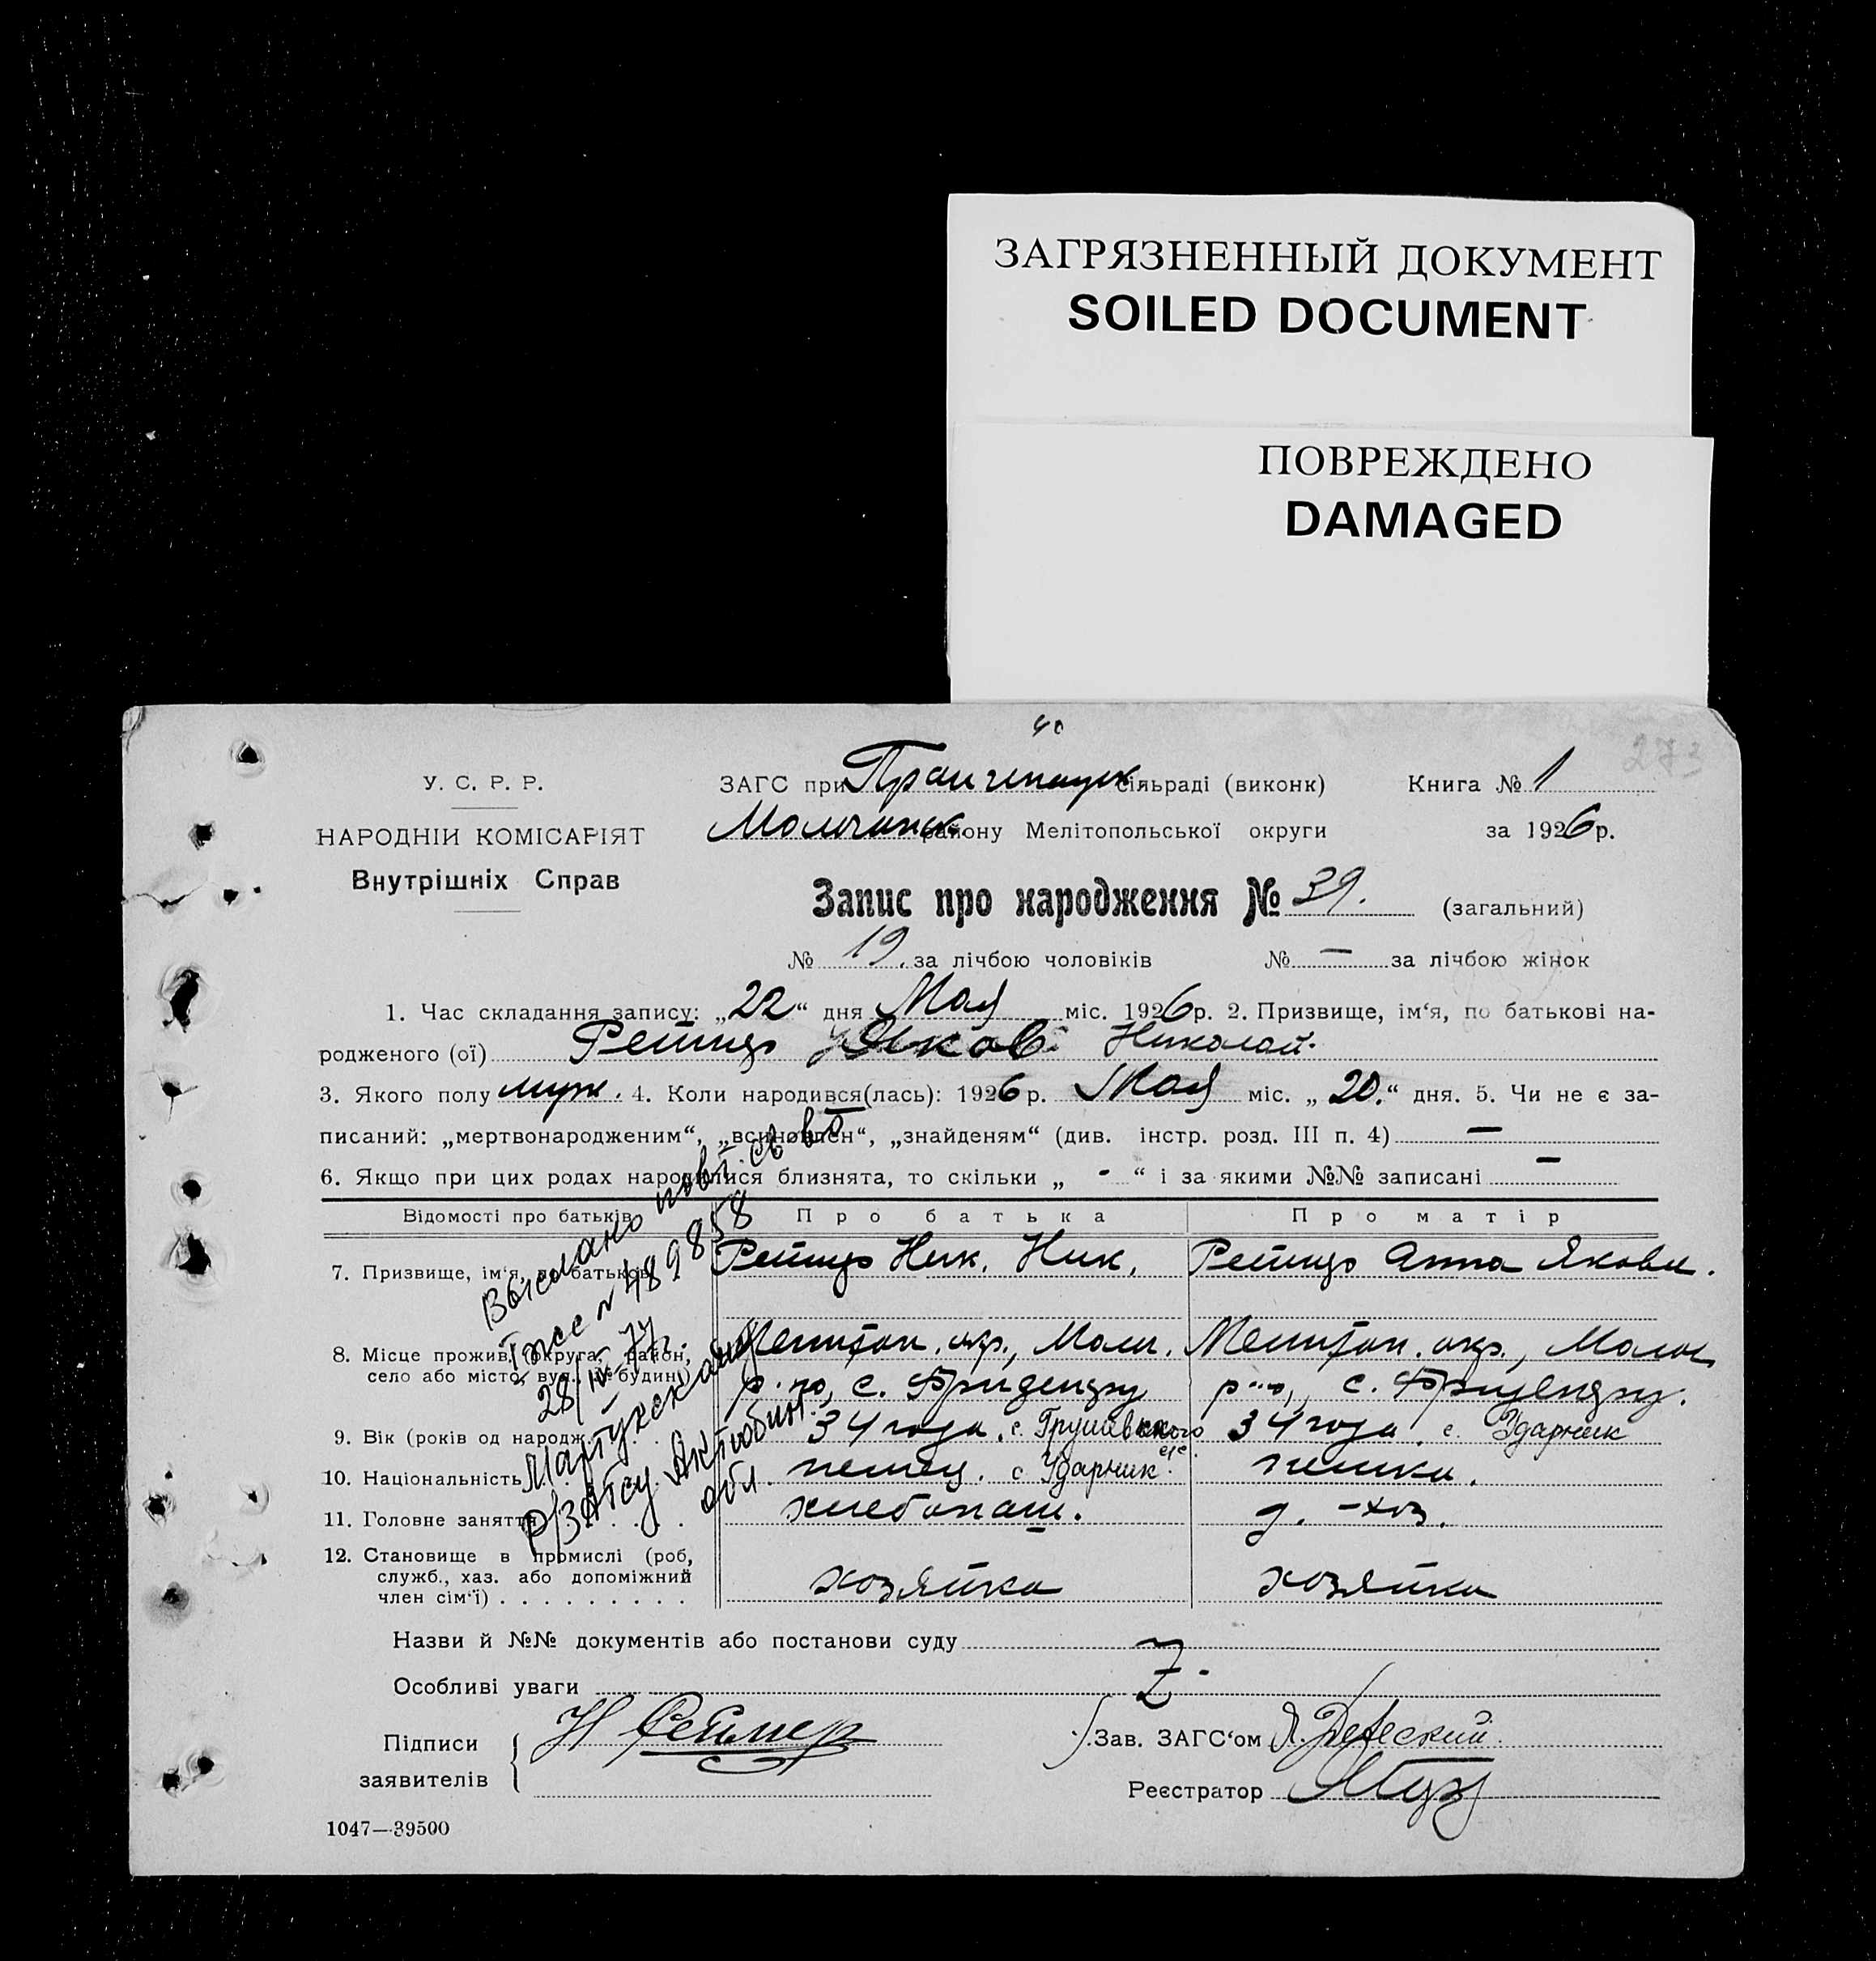 ЗАГРЯЗНЕННЫЙ ДОКУМЕНТ
SOILED DOCUMENT
ПОВРЕЖДЕНО
DAMAGED
40
273
У. С. Р. Р.
ЗАГС при сільраді (виконк) Книга № 1
району Мелітопольської округи за 1926 р.
НАРОДНІЙ КОМІСАРІЯТ
Внутрішніх Справ
Запис про народження № 39. (загальний)
№ 19. за лічбою чоловіків № — за лічбою жінок
1. Час складання запису: „22“ дня Мая міс. 1926 р. 2. Призвище, ім‘я, по батькові на-
родженого (ої) Яков Николай.
3. Якого полу муж. 4. Коли народився(лась): 1926 р. Мая міс. „20.“ дня. 5. Чи не є за-
писаний: „мертвонародженим“, „всиновлен“, „знайденям“ (див. інстр. розд. III п. 4) —
6. Якщо при цих родах народилися близнята, то скільки „ - “ і за якими №№ записані —
Відомості про батьків Про батька Про матір
7. Призвище, ім‘я, по батькові Ник. Ник. Анна Яковл.
8. Місце прожив. (округа, район, Мелитоп. окр., Моло. Мелитоп. окр., Молоч
село або місто, вул., № будин.) р-но, с. р-но, с.
9. Вік (років од народж. 34 года. с. Грушевкого с/с 34 года. с. Ударник
10. Національність немец. с Ударник. немка.
11. Головне заняття хлебопаш. д. -хоз.
12. Становище в промислі (роб, хозяйка хозяйка
служб., хаз. або допоміжний
член сім‘ї)
Выслано повт. св во
№ 489858
28/IV-77г.
Мартукскому
р/ЗАГСу Актюбин.
обл.
Назви й №№ документів або постанови суду
Особливі уваги Z
Підписи
заявителів
Н Реймер
Зав. ЗАГС‘ом
Реєстратор
1047—39500